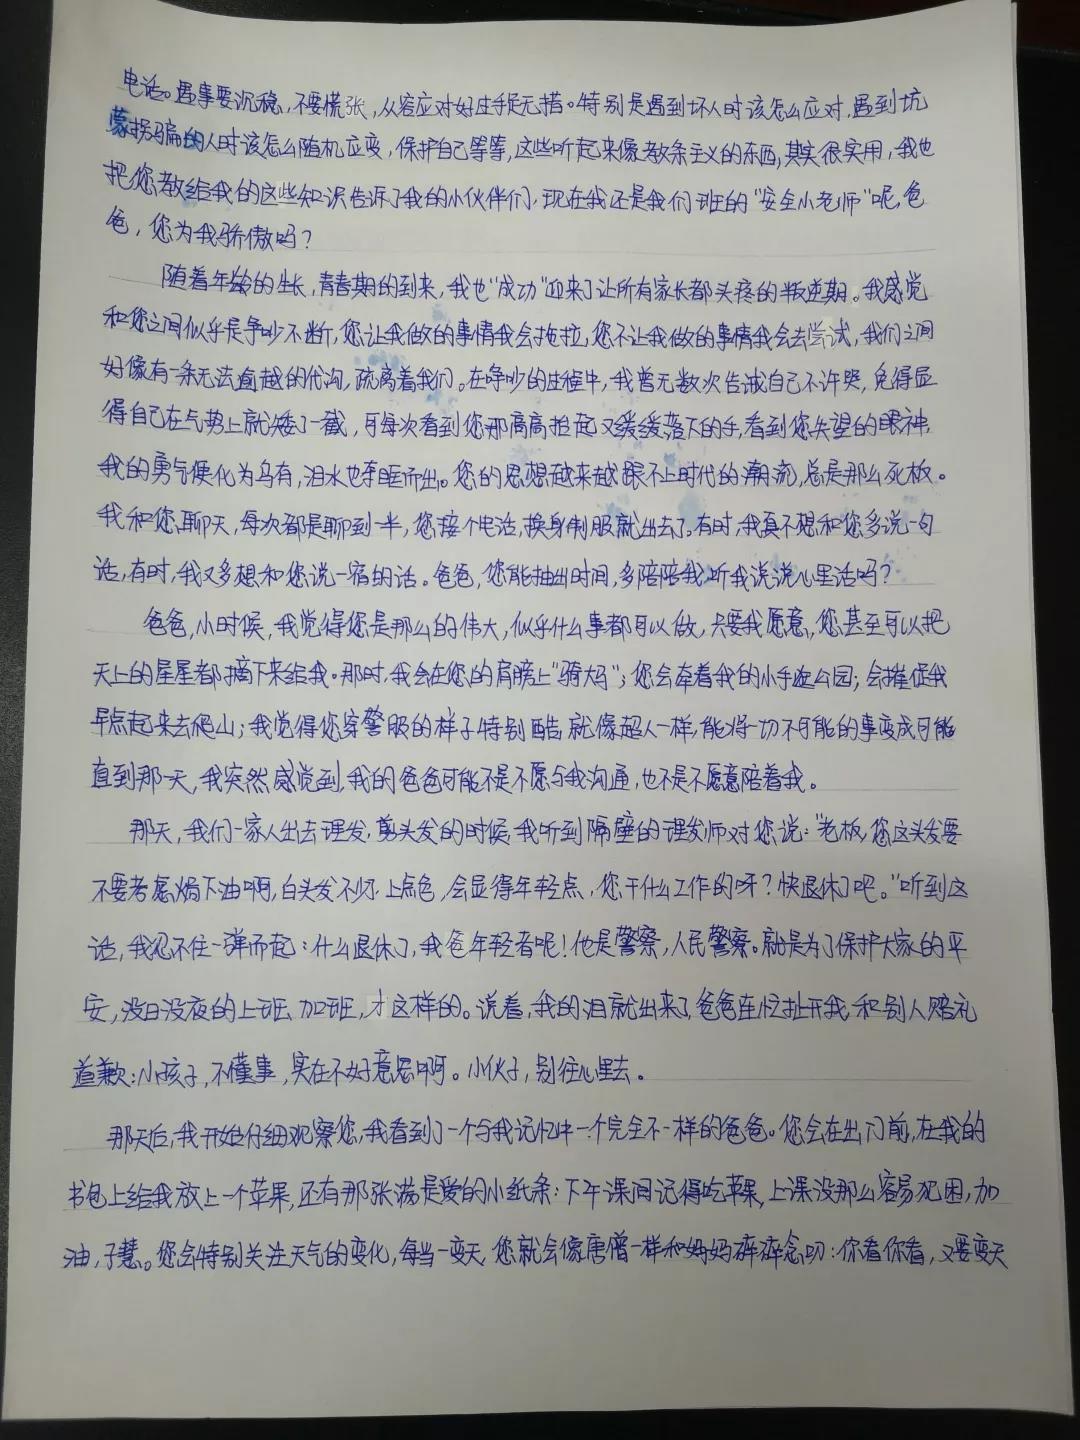 电话。遇事要沉稳，不要慌张，从容应对好过手足无措。特别是遇到坏人时该怎么应对，遇到坑
蒙拐骗的人时该怎么随机应变，保护自己等等，这些听起来像教条主义的东西，其实很实用，我也
把您教给我的这些知识告诉了我的小伙伴们，现在我还是我们班的“安全小老师”呢，爸
爸，您为我骄傲吗？
随着年龄的生长，青春期的到来，我也“成功”迎来了让所有家长都头疼的叛逆期。我感觉
和您之间似乎是争吵不断，您让我做的事情我会拖拉，您不让我做的事情我会去尝试，我们之间
好像有一条无法逾越的代沟，疏离着我们。在争吵的过程中，我曾无数次告诫自己不许哭，免得显
得自己在气势上就矮了一截，可每次看到您那高高抬起又缓缓落下的手，看到您失望的眼神，
我的勇气便化为乌有，泪水也夺眶而出。您的思想越来越跟不上时代的潮流，总是那么死板。
我和您聊天，每次都是聊到一半，您接个电话，换身制服就出去了。有时，我真不想和您多说一句
话，有时，我又多想和您说一宿的话。爸爸，您能抽出时间，多陪陪我，听我说说心里话吗？
爸爸，小时候，我觉得您是那么的伟大，似乎什么事都可以做，只要我愿意，您甚至可以把
天上的星星都摘下来给我。那时，我会在您的肩膀上“骑大马”；您会牵着我的小手逛公园；会催促我
早点起来去爬山；我觉得您穿警服的样子特别酷，就像超人一样，能将一切不可能的事变成可能
直到那一天，我突然感觉到，我的爸爸可能不是不愿与我沟通，也不是不愿意陪着我。
那天，我们一家人出去理发，剪头发的时候，我听到隔壁的理发师对您说：“老板，您这头发要
不要考虑焗下油啊，白头发不少，上点色，会显得年轻点，您干什么工作的呀？快退休了吧。”听到这
话，我忍不住一弹而起：什么退休了，我爸年轻着呢！他是警察，人民警察。就是为了保护大家的平
安，没日没夜的上班、加班，才这样的。说着，我的泪就出来了，爸爸连忙扯开我，和别人赔礼
道歉：小孩子，不懂事，实在不好意思啊。小伙子，别往心里去。
那天后，我开始仔细观察您，我看到了一个与我记忆中一个完全不一样的爸爸。您会在出门前，在我的
书包上给我放上一个苹果，还有那张满是爱的小纸条：下午课间记得吃苹果，上课没那么容易犯困，加
油，子慧。您会特别关注天气的变化，每当一变天，您就会像唐僧一样和妈妈碎碎念叨：你看你看，又要变天